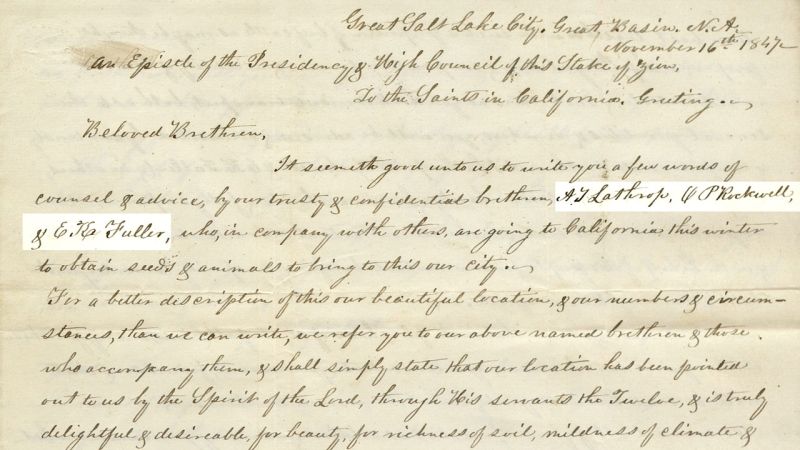 Great Salt Lake City. Great, Basin. N. A.
November 16th 1847
An Epistle of the Presidency, & High Council of this Stake of Zion,
To the Saints in California. Greeting.
Beloved Brethren,
It seemeth good unto us to write you a few words of
counsel & advice, by our trusty & confidential brethren, A J Lathrop, O P Rockwell,
& E K Fuller, who, in company with others, are going to California this winter
to obtain seeds & animals to bring to this our city.
For a better discription of this our beautiful location, & our numbers & circum-
stances, than we can write, we refer you to our above named brethren & those
who accompany them, & shall simply state that our location has been pointed
out to us by the Spirit of the Lord, through His servants the Twelve, & is truly
delightful & desireable, for beauty, for richness of soil, mildness of climate &